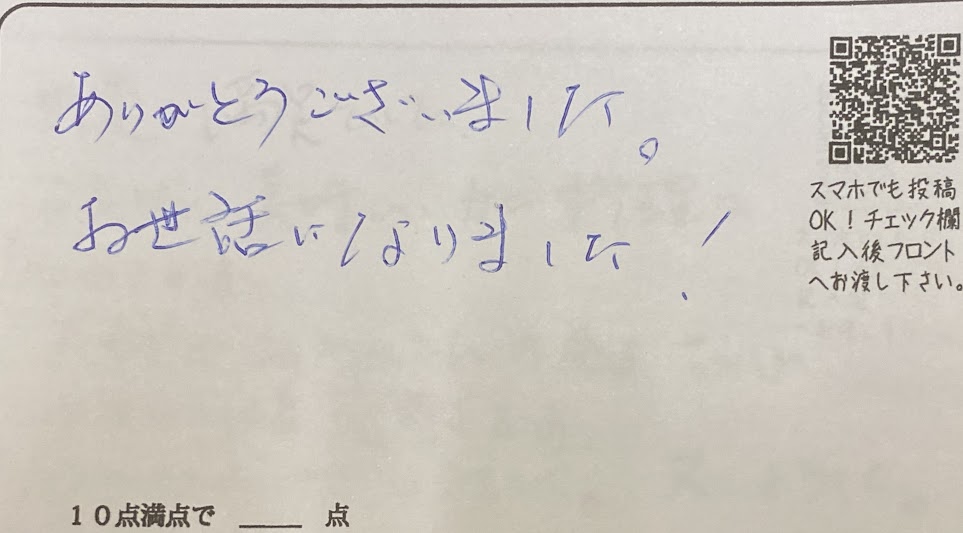 ありがとうございました。
お世話になりました!
スマホでも投稿
OK!チェック欄
記入後フロント
へお渡し下さい。
10点満点で ____ 点